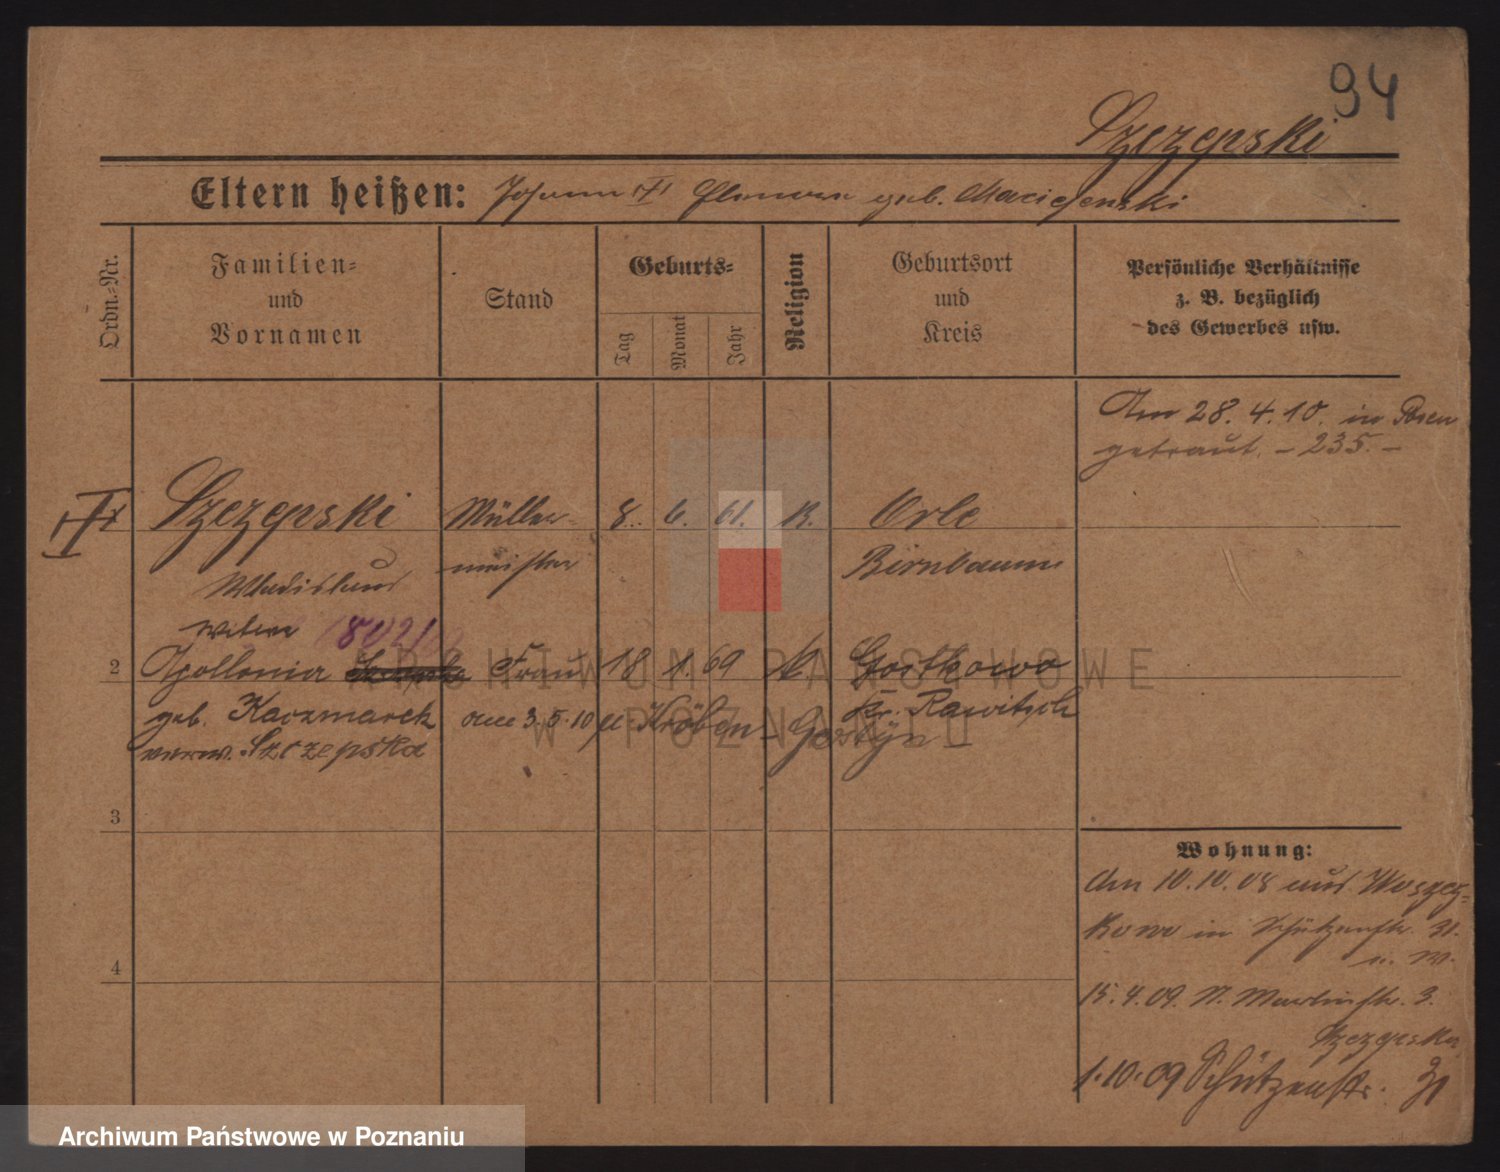 94
Szczepski
Eltern heißen: Johann Eleonora geb. Maciejenski
Ordn.-Nr.
Familien- und Vornamen
Stand
Geburts-
Tag
Monat
Jahr
Religion
Geburtsort und Kreis
Persönliche Verhältnisse
z. B. bezüglich
des Gewerbes usw.
Am 28. 4. 10. in Posen
getraut. - 235. -
Szczepski Müller- 8. 6. 61. K. Orle
Wladislaus meister Birnbaum
Witwe 1802/
2 Apollonia Frau 18 1. 69 K. Gostkowo
geb. Kaczmarek am 3. 5. 10 Kröben - Gostyn - Kr. Rawitsch
verw. Szczepska
3
4
Wohnung:
Am 10. 10. 08 aus Woszcz-
kowo in Schützenstr. 31.
15. 4. 09. St. Martinstr. 3.
Szczepska
1. 10. 09 Schützenstr. 31
ARCHIWUM PAŃSTWOWE
W POZNANIU
Archiwum Państwowe w Poznaniu